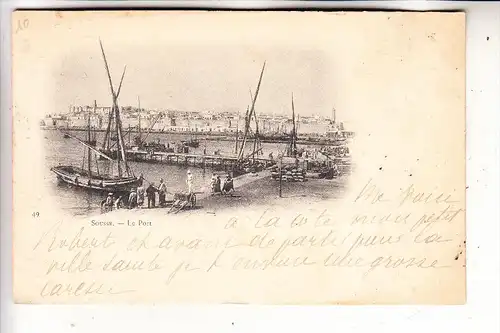 10
49
SOUSSE. — LE PORT
Me voici
à la côte mon petit
Robert et avant de partir pour la
ville Sainte je t'envoie une grosse
caresse